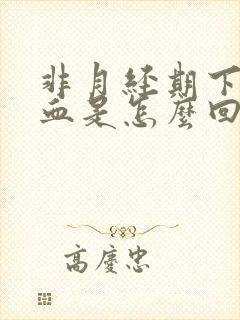 非月經期下
血是怎麼回
高慶忠